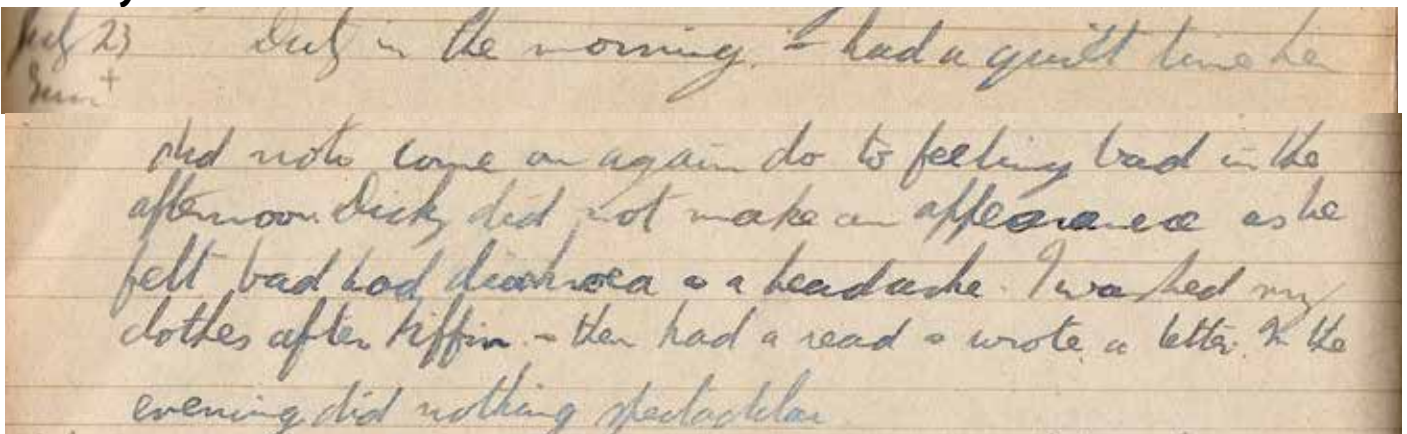 July 23 Duty in the morning. & had a quiet time he
Sun +
did not come on again do to feeling bad in the
afternoon. Dick, did not make an appearance as he
felt bad had diarhoea & a headache. I washed my
clothes after tiffin - then had a read & wrote a letter. In the
evening did nothing spectacklar